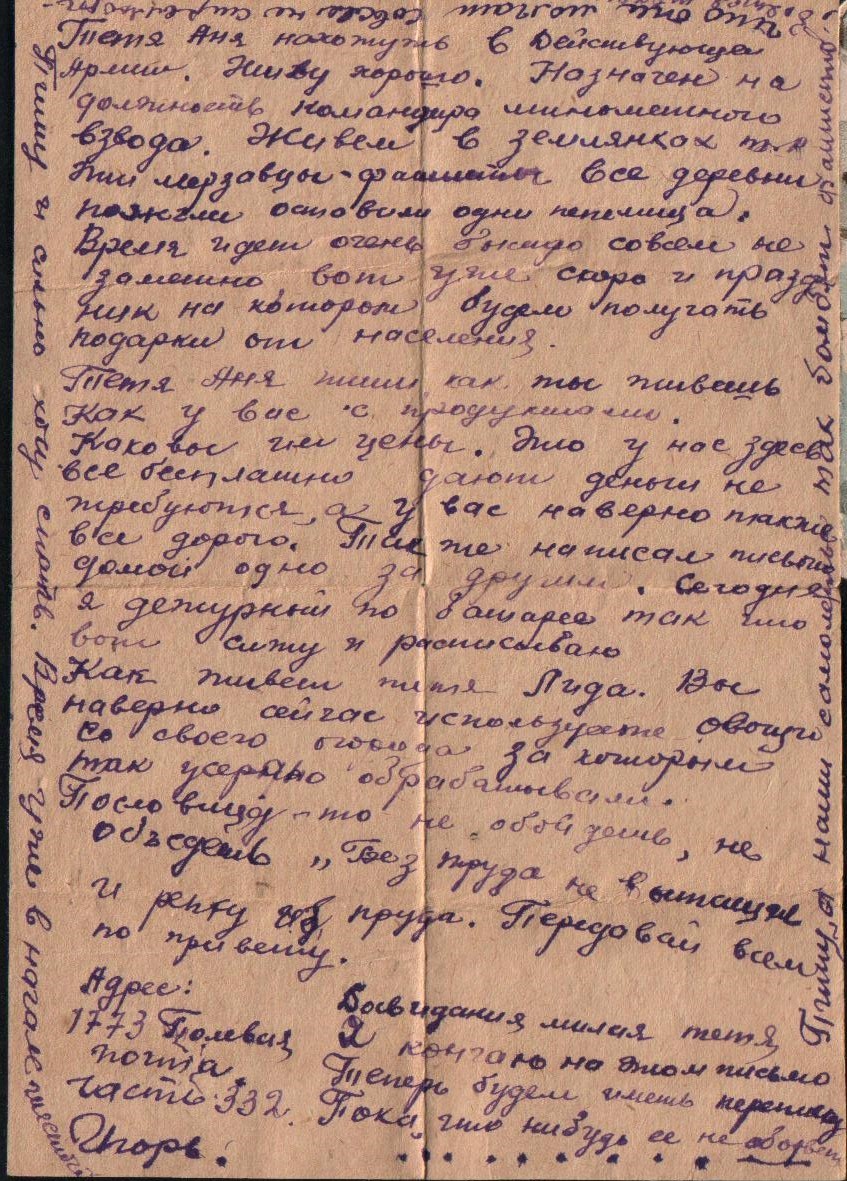 Тетя Аня нахожусь в Действующе
Армии. Живу хорошо. Назначен на
должность командира минометного
взвода. Живем в землянках т.к
эти мерзавцы-фашисты все деревни
пожгли оставили одни пепелища.
Время идет очень быстро совсем не
заметно вот уже скоро и празд
ник на котором будем получать
подарки от населения.
Тетя Аня пиши как ты живешь
Как у вас с продуктами.
Каковы им цены. Это у нас здесь
все бесплатно дают деньги не
требуются, а у вас наверно также
все дорого. Также написал письма
домой одно за другим. Сегодня
я дежурный по батарее так что
вот сижу и расписываю
Как живет тетя Лида. Вы
наверно сейчас используете овощи
со своего огорода за которым
так усердно обрабатывали.
Пословицу-то не обойдешь, не
объедешь „Без труда не вытащиш
и репку из пруда. Передавай всем
по привету.
Адрес:
1773 Полевая
почта
часть 332.
Игорь.
Досвидания милая тетя
Я кончаю на этом письмо
Теперь будем иметь переписку
Пока, что нибудь ее не оборвет
Пишу и сильно хочу спать. Время уже в начале шестой
Пишу, а наши самолеты так бомбят фашистов